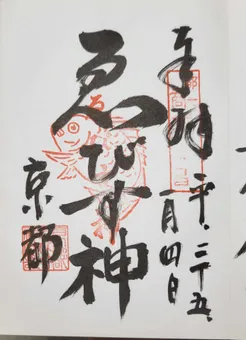 奉拝
平、二十五、
一月四日
ゑびす神
京都